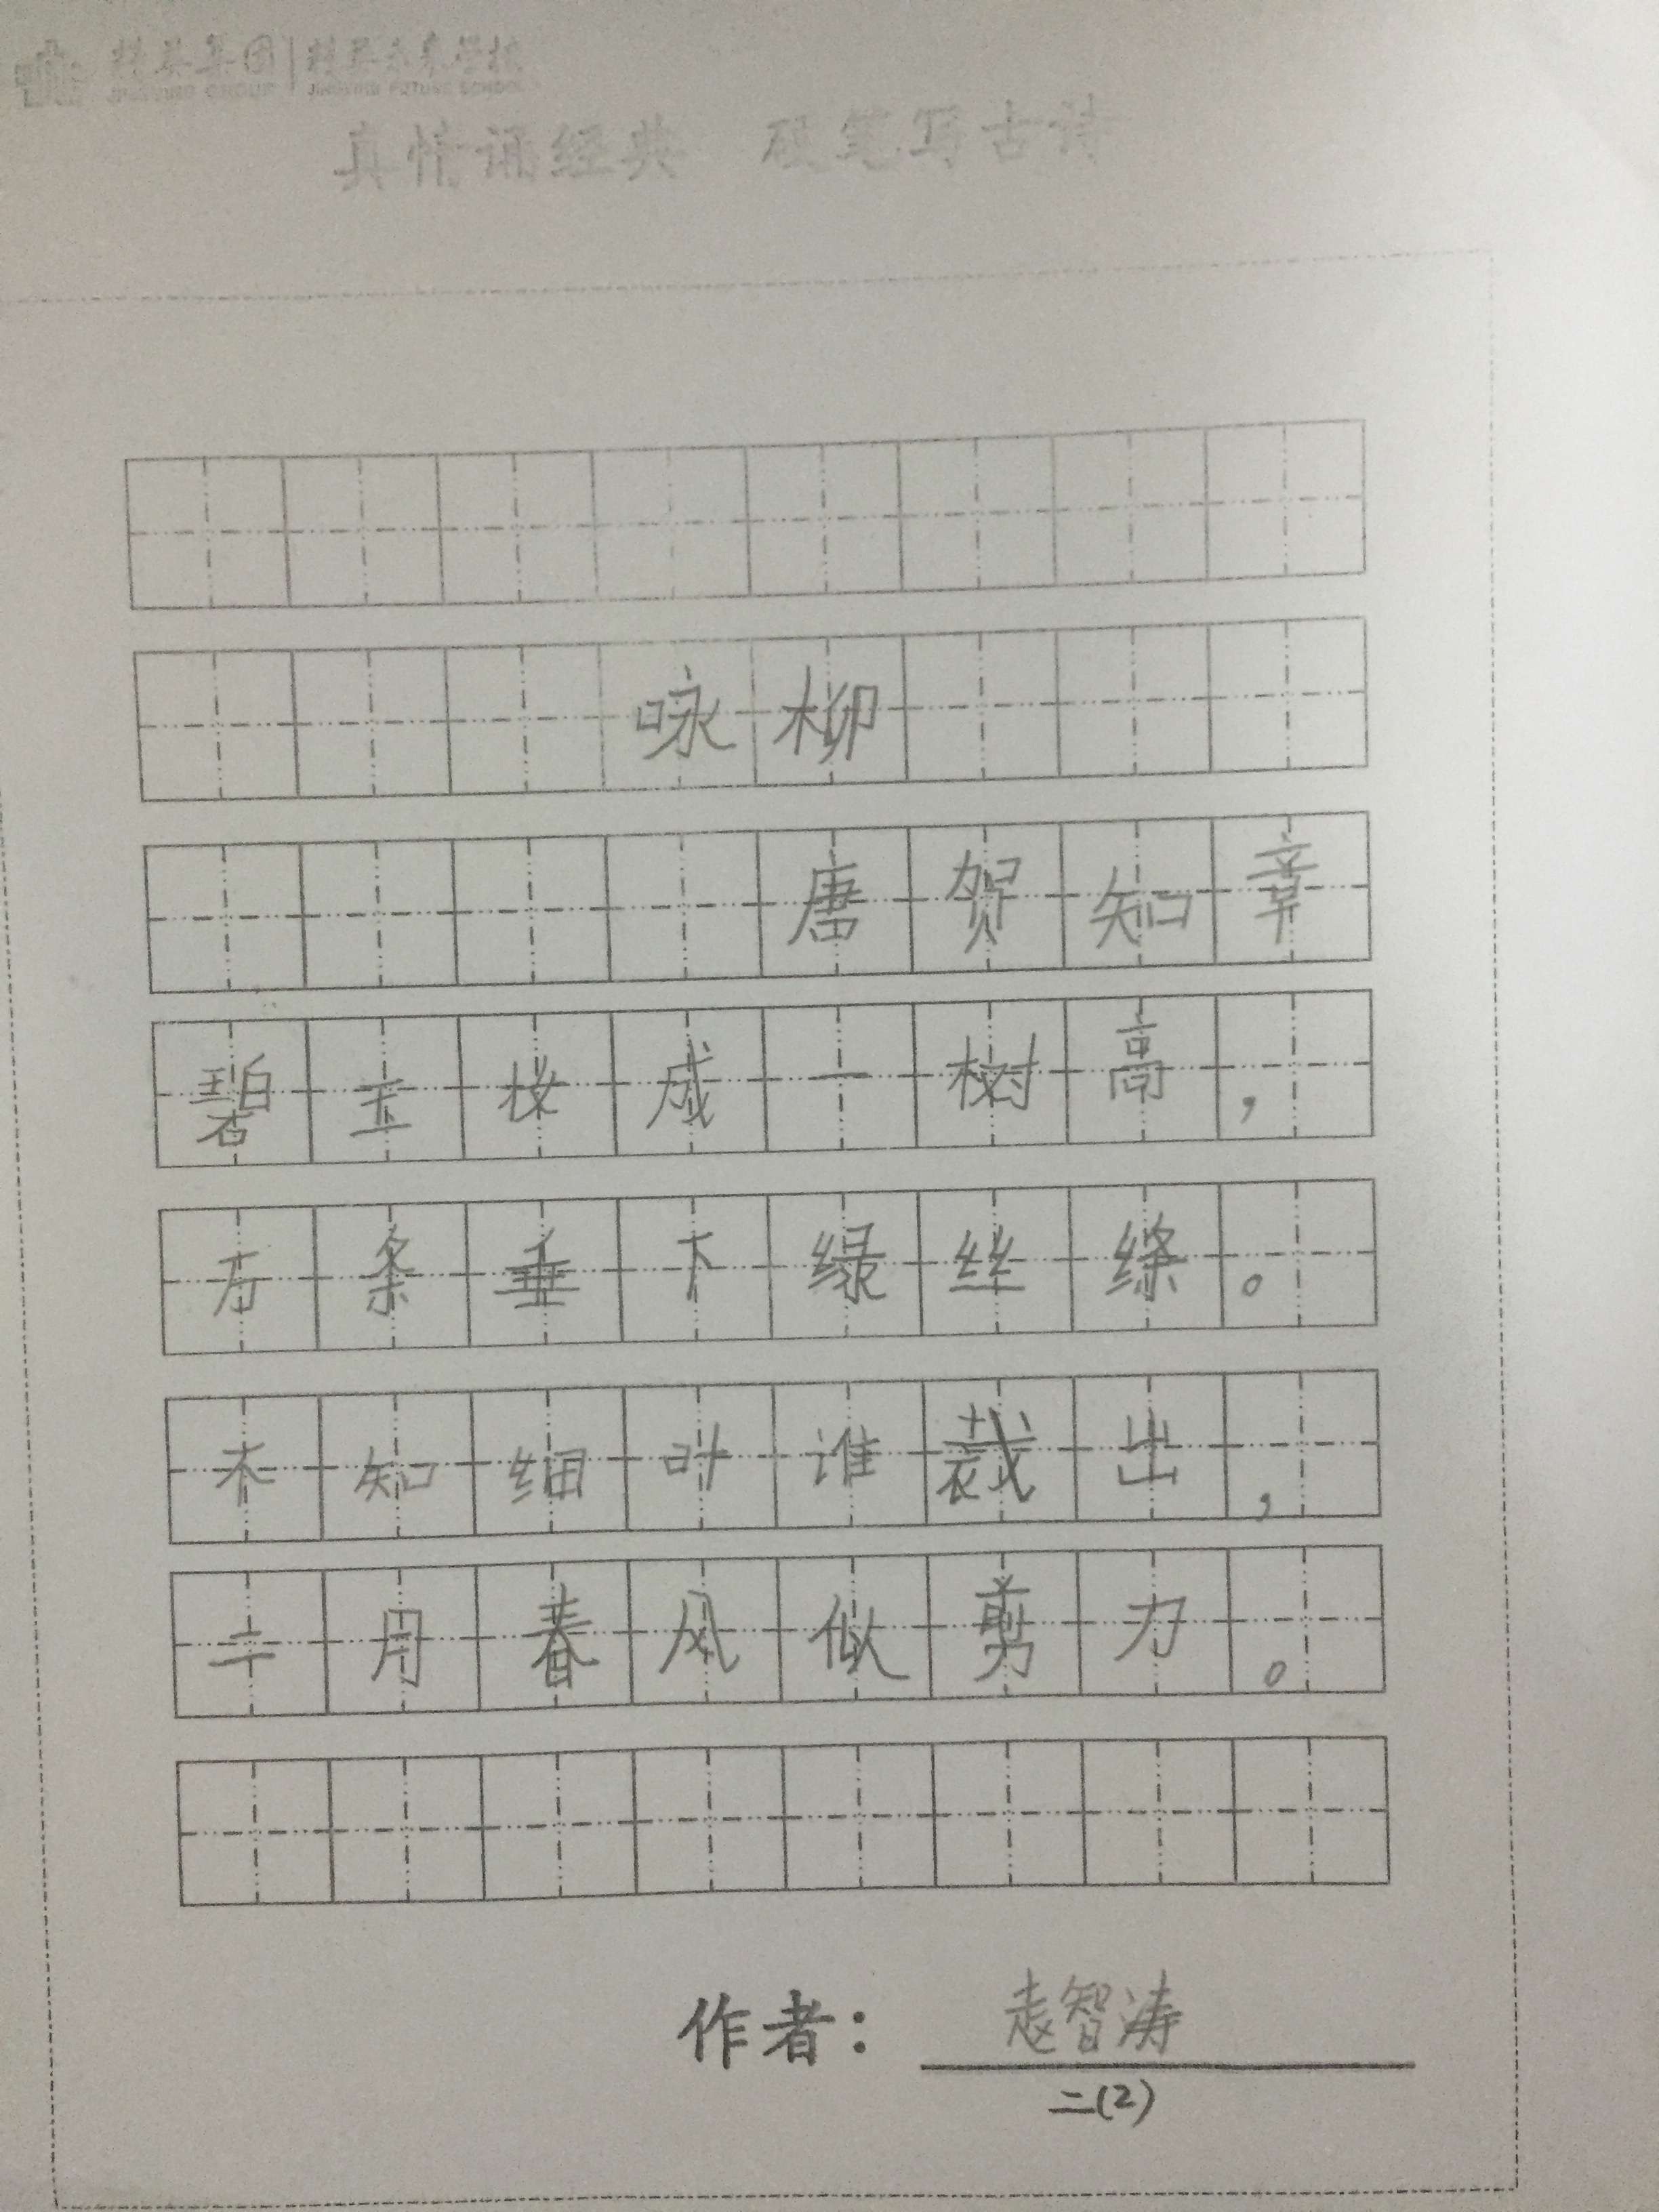 JINGYING GROUP JINGYING FUTURE SCHOOL
真情诵经典 硬笔写古诗
咏柳
唐 贺知章
碧玉妆成一树高，
万条垂下绿丝绦。
不知细叶谁裁出，
二月春风似剪刀。
作者：赵智涛
二(2)